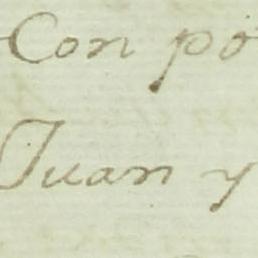 Con po
Juan y